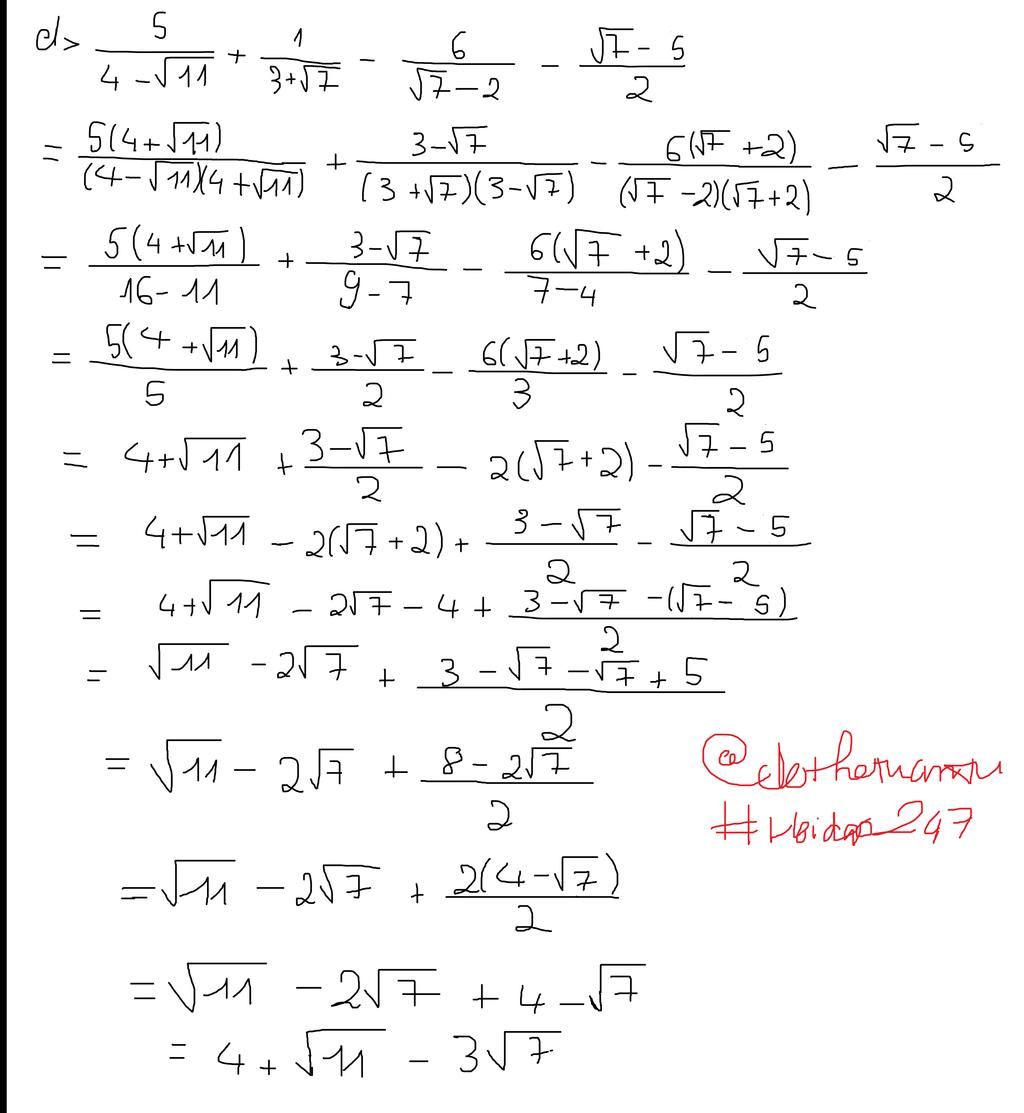 d> 5/(4-√11) + 1/(3+√7) - 6/(√7-2) - (√7-5)/2
= 5(4+√11)/((4-√11)(4+√11)) + (3-√7)/((3+√7)(3-√7)) - 6(√7+2)/((√7-2)(√7+2)) - (√7-5)/2
= 5(4+√11)/(16-11) + (3-√7)/(9-7) - 6(√7+2)/(7-4) - (√7-5)/2
= 5(4+√11)/5 + (3-√7)/2 - 6(√7+2)/3 - (√7-5)/2
= 4+√11 + (3-√7)/2 - 2(√7+2) - (√7-5)/2
= 4+√11 - 2(√7+2) + (3-√7)/2 - (√7-5)/2
= 4+√11 - 2√7 - 4 + (3-√7-(√7-5))/2
= √11 - 2√7 + (3-√7-√7+5)/2
= √11 - 2√7 + (8-2√7)/2
= √11 - 2√7 + 2(4-√7)/2
= √11 - 2√7 + 4 - √7
= 4 + √11 - 3√7